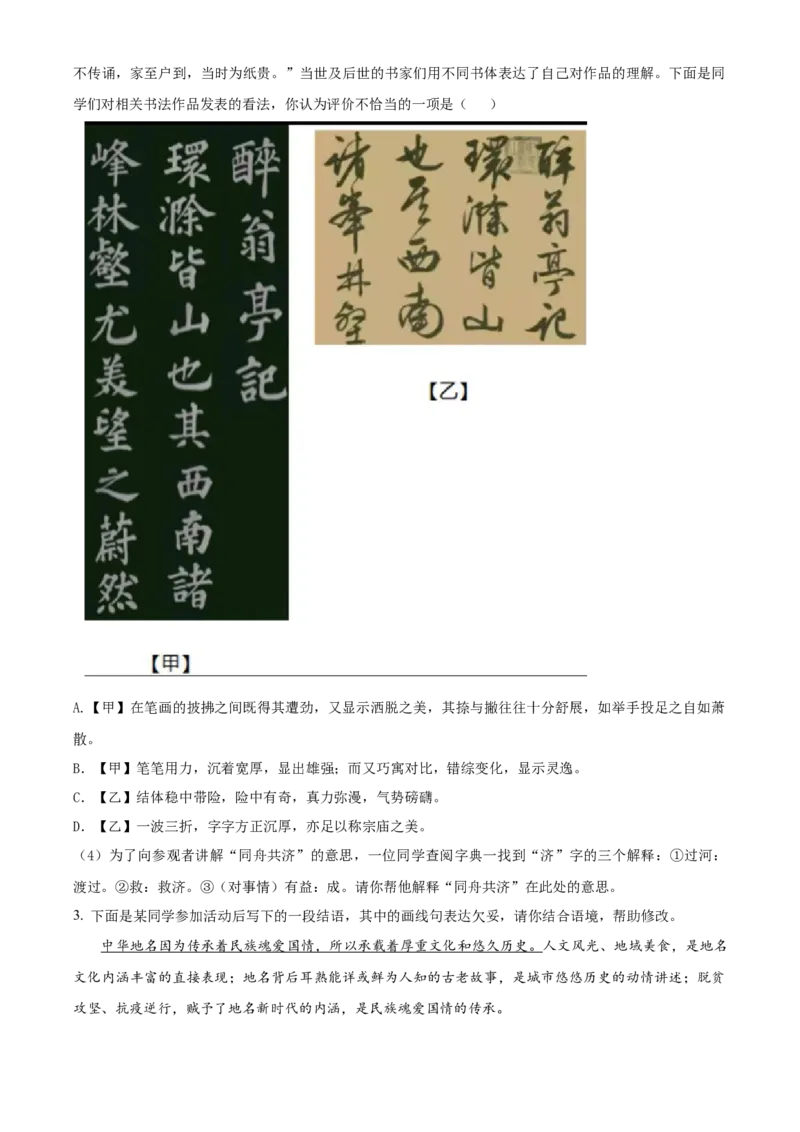 不传诵，家至户到，当时为纸贵。”当世及后世的书家们用不同书体表达了自己对作品的理解。下面是同
学们对相关书法作品发表的看法，你认为评价不恰当的一项是（   ）
醉翁亭記
環滁皆山也其西南諸
峰林壑尤美望之蔚然
醉翁亭记
環滁皆山
也其西南
诸峯林壑
【乙】
【甲】
A.【甲】在笔画的披拂之间既得其遭劲，又显示洒脱之美，其捺与撇往往十分舒展，如举手投足之自如萧
散。
B. 【甲】笔笔用力，沉着宽厚，显出雄强；而又巧寓对比，错综变化，显示灵逸。
C. 【乙】结体稳中带险，险中有奇，真力弥漫，气势磅礴。
D. 【乙】一波三折，字字方正沉厚，亦足以称宗庙之美。
（4）为了向参观者讲解“同舟共济”的意思，一位同学查阅字典一找到“济”字的三个解释：①过河：
渡过。②救：救济。③（对事情）有益：成。请你帮他解释“同舟共济”在此处的意思。
3. 下面是某同学参加活动后写下的一段结语，其中的画线句表达欠妥，请你结合语境，帮助修改。
中华地名因为传承着民族魂爱国情，所以承载着厚重文化和悠久历史。人文风光、地域美食，是地名
文化内涵丰富的直接表现；地名背后耳熟能详或鲜为人知的古老故事，是城市悠悠历史的动情讲述；脱贫
攻坚、抗疫逆行，赋予了地名新时代的内涵，是民族魂爱国情的传承。